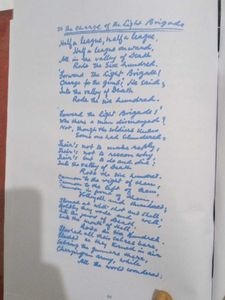 The charge of the Light Brigade
Half a league, half a league,
Half a league onward,
All in the valley of Death
Rode the Six hundred.
Forward the Light Brigade!
Charge for the guns! He said,
Into the valley of Death
Rode the six hundred.
Forward the Light Brigade!
Was there a man dismayed?
Not, though the soldiers knew
Some one had blundered,
Their's not to make reply,
Their's not to reason why,
Their's but to do and die:
Into the valley of Death
Rode the six hundred.
Cannon to the right of them,
Cannon to the left of them
Cannon in front of them
Volleyed and thundered
Stormed at with shot and shell
Boldly they rode and well
Into the jaws of Death
Into the mouth of hell
Rode the six hundred
Flashed all their sabres bare,
Flashed as they turned in air
Sabring the gunners there,
Charging an army, while
All the world wondered.